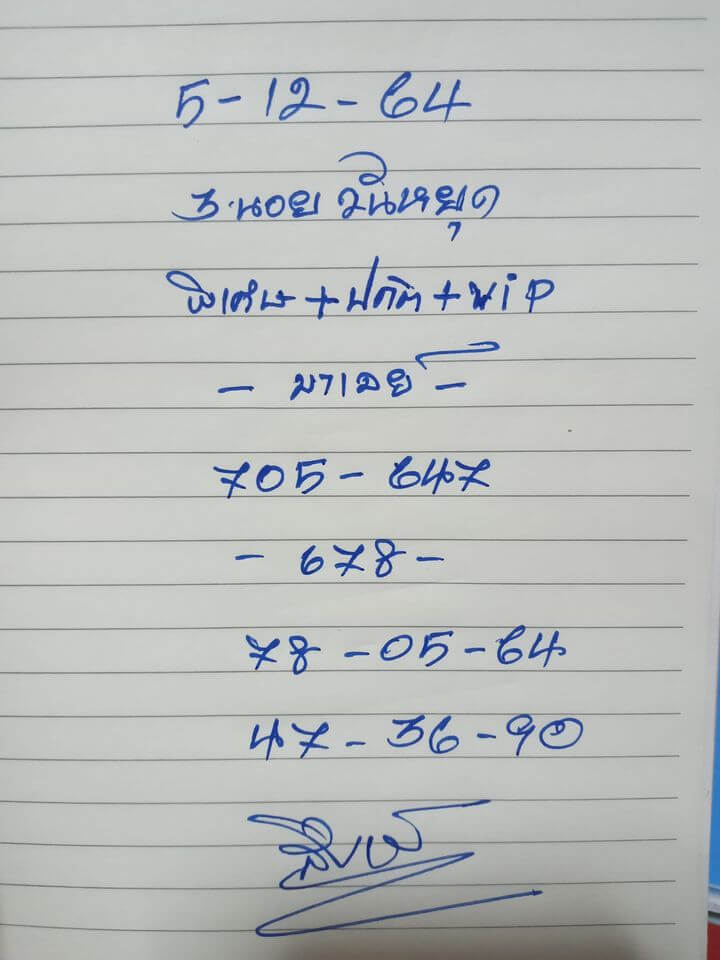 5-12-64
ฮ.นอย วันหยุด
พิเศษ+ปกติ+vip
- มาเลย์ -
705-647
- 678 -
78-05-64
47-36-90